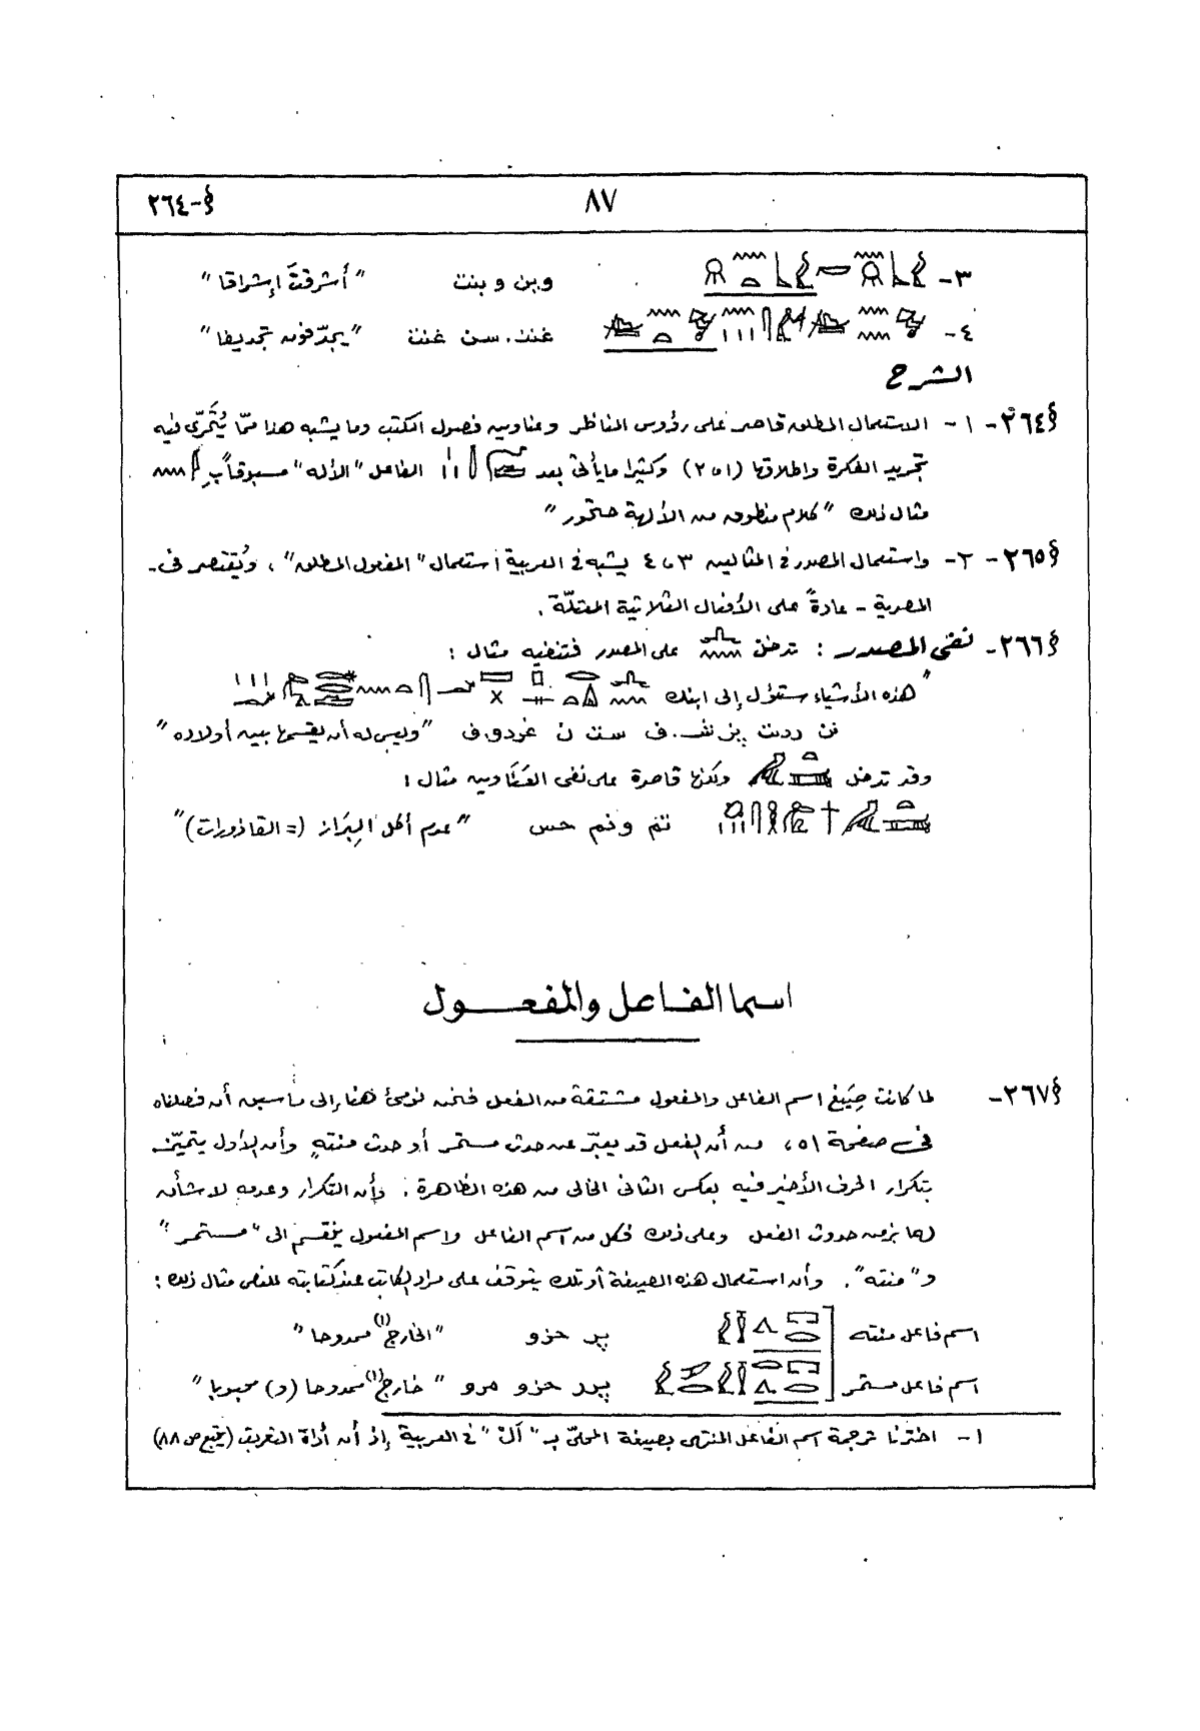 §-٢٦٤ ٨٧
٣- وبن وبنت "أشرقتَ إشراقا"
٤- خنن.سن خنت "يجدّفون تجديفا"
الشرح
§٢٦٤- ١- الاستعمال المطلق قاصر على رؤوس المناظر وعناوين فصول الكتب وما يشبه هذا ممّا يُتَحَرّى فيه
تجريد الفكرة وإطلاقها (١، ٢) وكثيرا ما يأتى بعد الفاعل "الأله" مسبوقاً بِ
مثال ذلك "كلام منطوق من الألهة حتحور"
§٢٦٥- ٢- واستعمال المصدر فى المثالين ٣، ٤ يشبه فى العربية استعمال "المفعول المطلق"، ويُقتصر فى-
المصرية - عادةً على الأفعال الثلاثية المعتلّة.
§٢٦٦- نفى المصدر: تدخل على المصدر فتنفيه مثال:
"هذه الأشياء ستؤول إلى ابنك
نن ردت پزش.ف ست ن خردو.ف "وليس له أن يقسمها بين أولاده"
وقد تدخل ولكنها قاصرة على نفى العَنَاوين مثال:
تم ونم حس "عدم أكل البِرَاز (= القاذورات)"
اسما الفاعل والمفعول
§٢٦٧- لما كانت صِيَغ اسم الفاعل والمفعول مشتقة من الفعل فنحن نومئ هنا إلى ما سبق أن فصلناه
فى صفحة ٥١، من أن الفعل قد يعبّر عن حدث مستمر أو حدث منتهٍ وأن الأول يتميّز
بتكرار الحرف الأخير فيه بعكس الثانى الخالى من هذه الظاهرة. وأن التكرار وعدمه لا شأن
لهما بزمن حدوث الفعل وعلى ذلك فكل من اسم الفاعل واسم المفعول ينقسم الى "مستمر"
و"منته". وأن استعمال هذه الصيغة أو تلك يتوقف على مراد الكاتب عند كتابته للنص مثال ذلك:
اسم فاعل منته پر حزو "الخارج(١) ممدوحا"
اسم فاعل مستمر پرر حزو مرو "خارج(١) ممدوحا (و) محبوبا"
١- اخترنا ترجمة اسم الفاعل المنتهى بصيغة المحلىّ بـ "ألْ" فى العربية إذ أن أداة التعريف (يتبع ص ٨٨)